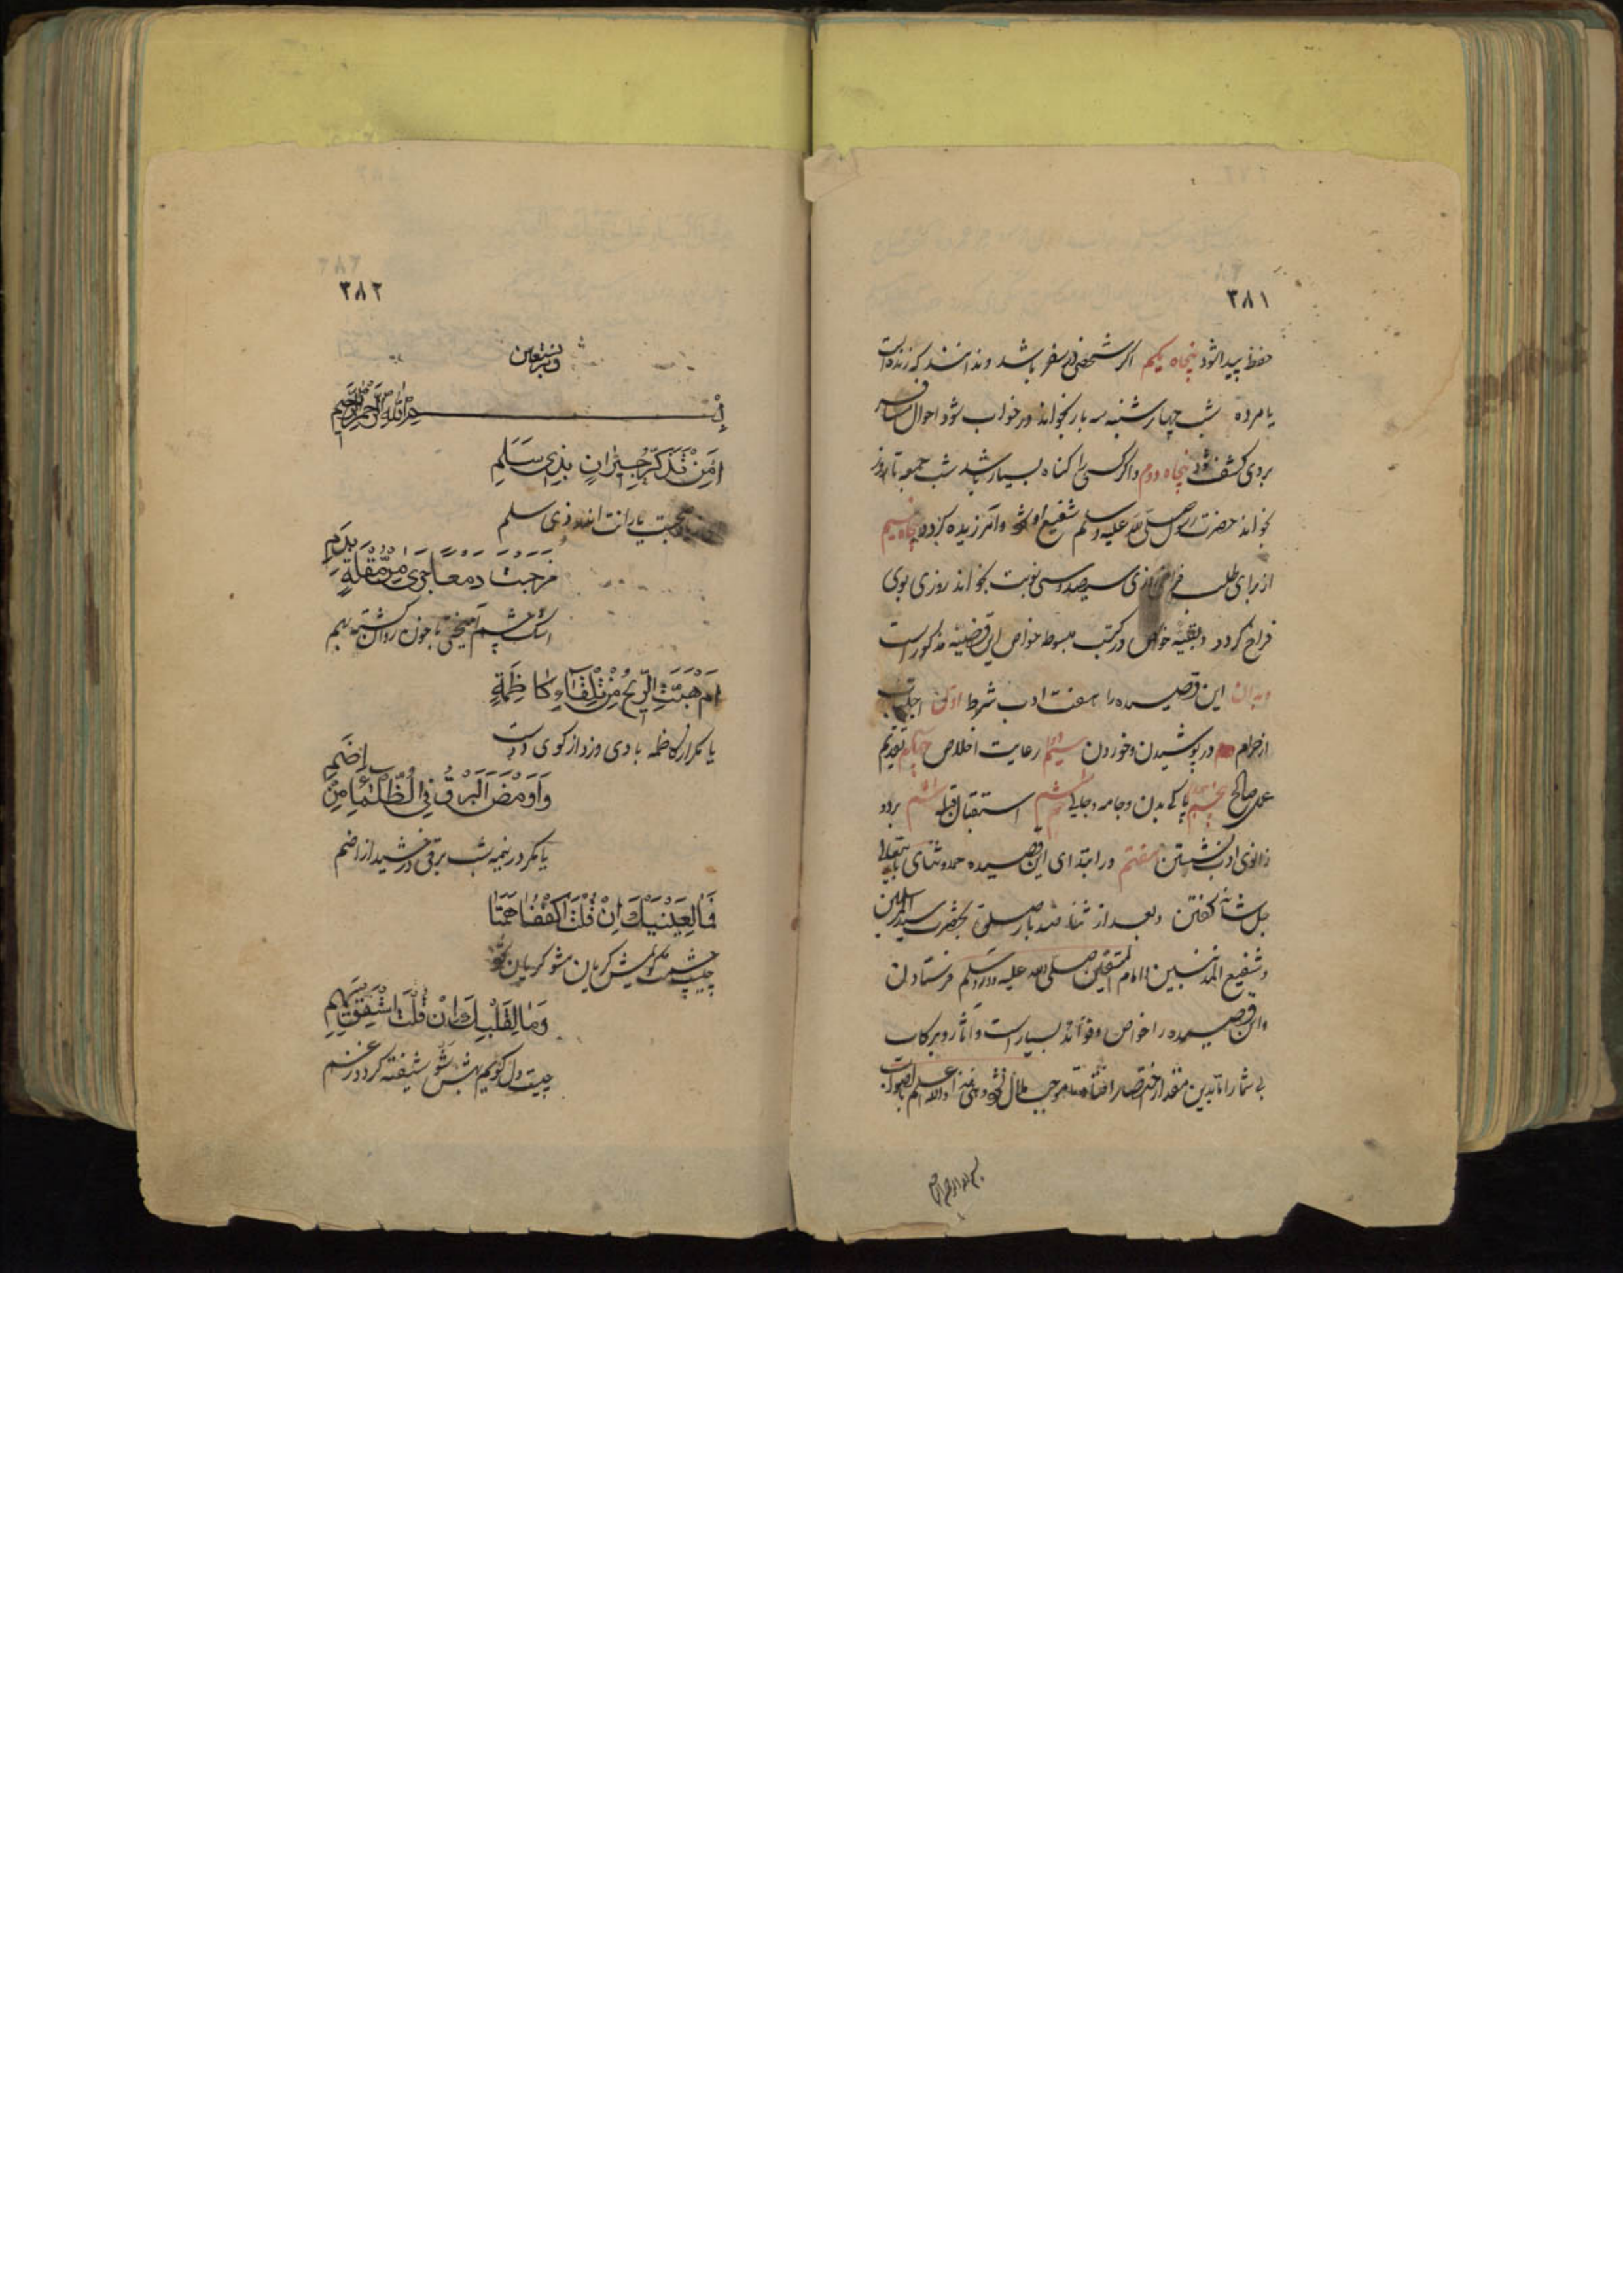 ۳۸۱
حفظ پیدا شود پنجاه یکم اکر شخصی در سفر باشد و ندانند که زنده است
یا مرده شب چهارشنبه سه بار بخواند در خواب شود احوال مسافر
بروی کشف شود پنجاه دوم و اکر کسی را کناه بسیار باشد شب جمعه تا روز
بخواند حضرت رسول صلی الله علیه وسلم شفیع او شود و امرزیده کردد پنجاه سیم
از برای طلب فراخ روزی سیصد و سی نوبت بخواند روزی بوی
فراخ کردد و بقیه خواص در کتب مبسوط خواص این قصیده مذکور است
و بدان این قصیده را هفت ادب شرط اول اجتناب
از حرام در پوشیدن و خوردن سیم رعایت اخلاص چهارم تقدیم
عمل صالح پنجم پاکی بدن و جامه و جای ششم استقبال قبله بردو
زانوی ادب نشستن هفتم در ابتدای این قصیده حمد و ثنای باریتعالی
جل شانه کفتن و بعد از ثنا صد بار صلوة بحضرت سید المرسلین
و شفیع المذنبین امام المتقین صلی الله علیه وسلم فرستادن
و این قصیده را خواص و فوائد بسیار است و آثار و برکات
بی شمار اما بدین مقدار اختصار افتاد تا موجب ملال نشود والله اعلم بالصواب
بسم الله الرحمن الرحیم
۳۸۲
وبه نستعین
بسم الله الرحمن الرحیم
اَمِنْ تَذَكُّرِ جِيْرَانٍ بِذِيْ سَلَمِ
محبت یارانت اندر ذی سلم
مَزَجْتَ دَمْعًا جَرٰى مِنْ مُقْلَةٍ بِدَمِ
اشک چشم آمیختی با خون روان کشته بهم
اَمْ هَبَّتِ الرِّيْحُ مِنْ تِلْقَآءِ كَاظِمَةٍ
یا مکر از کاظمه بادی وزد از کوی دوست
وَاَوْمَضَ الْبَرْقُ فِي الظَّلْمَآءِ مِنْ اِضَمِ
یا مکر در نیمه شب برقی درخشید از اضم
فَمَا لِعَيْنَيْكَ اِنْ قُلْتَ اكْفُفَا هَمَتَا
چیست چشمت کویمش کریان مشو کریان شود
وَمَا لِقَلْبِكَ اِنْ قُلْتَ اسْتَفِقْ يَهِمِ
چیست دل کویم بهش شو شیفته کردد زغم